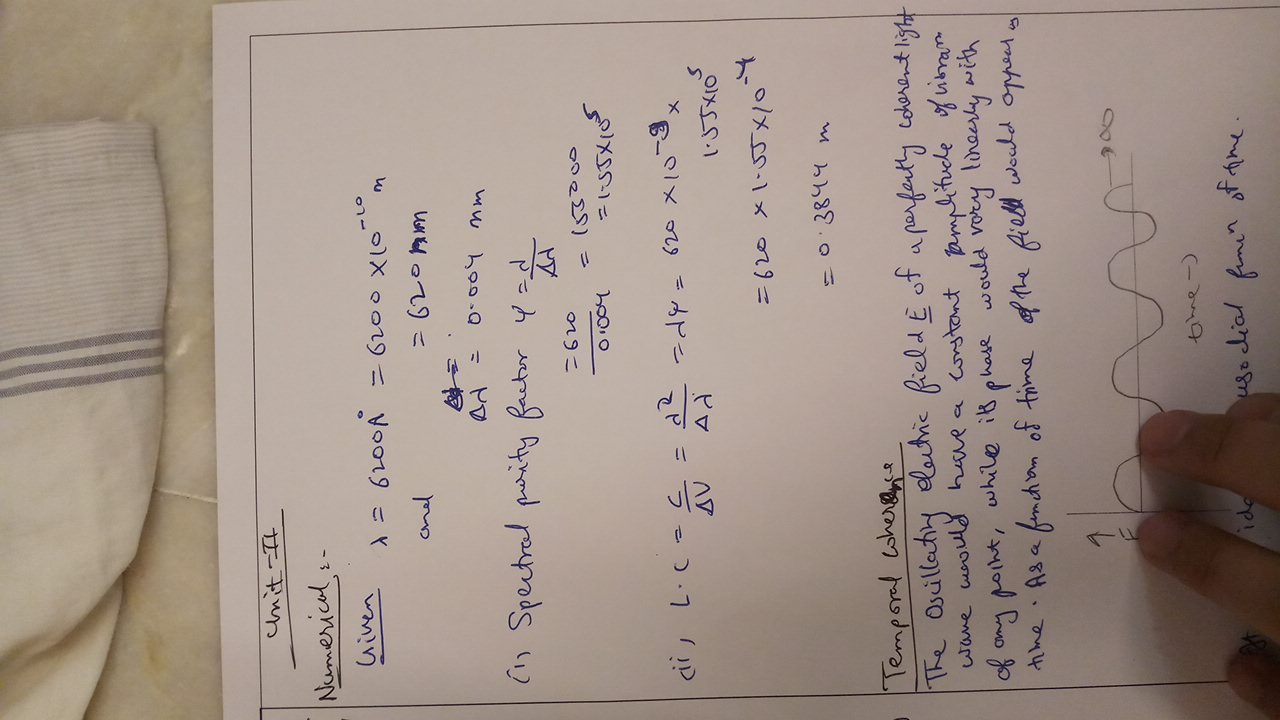 Unit-II
Numerical :-
Given λ = 6200A° = 6200 × 10⁻¹⁰ m
and = 620 nm
Δλ = 0.004 nm
(i) Spectral purity factor φ = λ/Δλ
= 620/0.004 = 155000
= 1.55×10⁵
(ii) L.C = C/ΔV = λ²/Δλ = λφ = 620 × 10⁻⁹ × 1.55×10⁵
= 620 × 1.55 × 10⁻⁴
= 0.3844 m
Temporal Coherence
The Oscillating electric field E of a perfectly coherent light
wave would have a constant amplitude of vibration
of any point, while its phase would vary linearly with
time. As a function of time the field would appear as
E
→∞
time →
usodial funn of time.